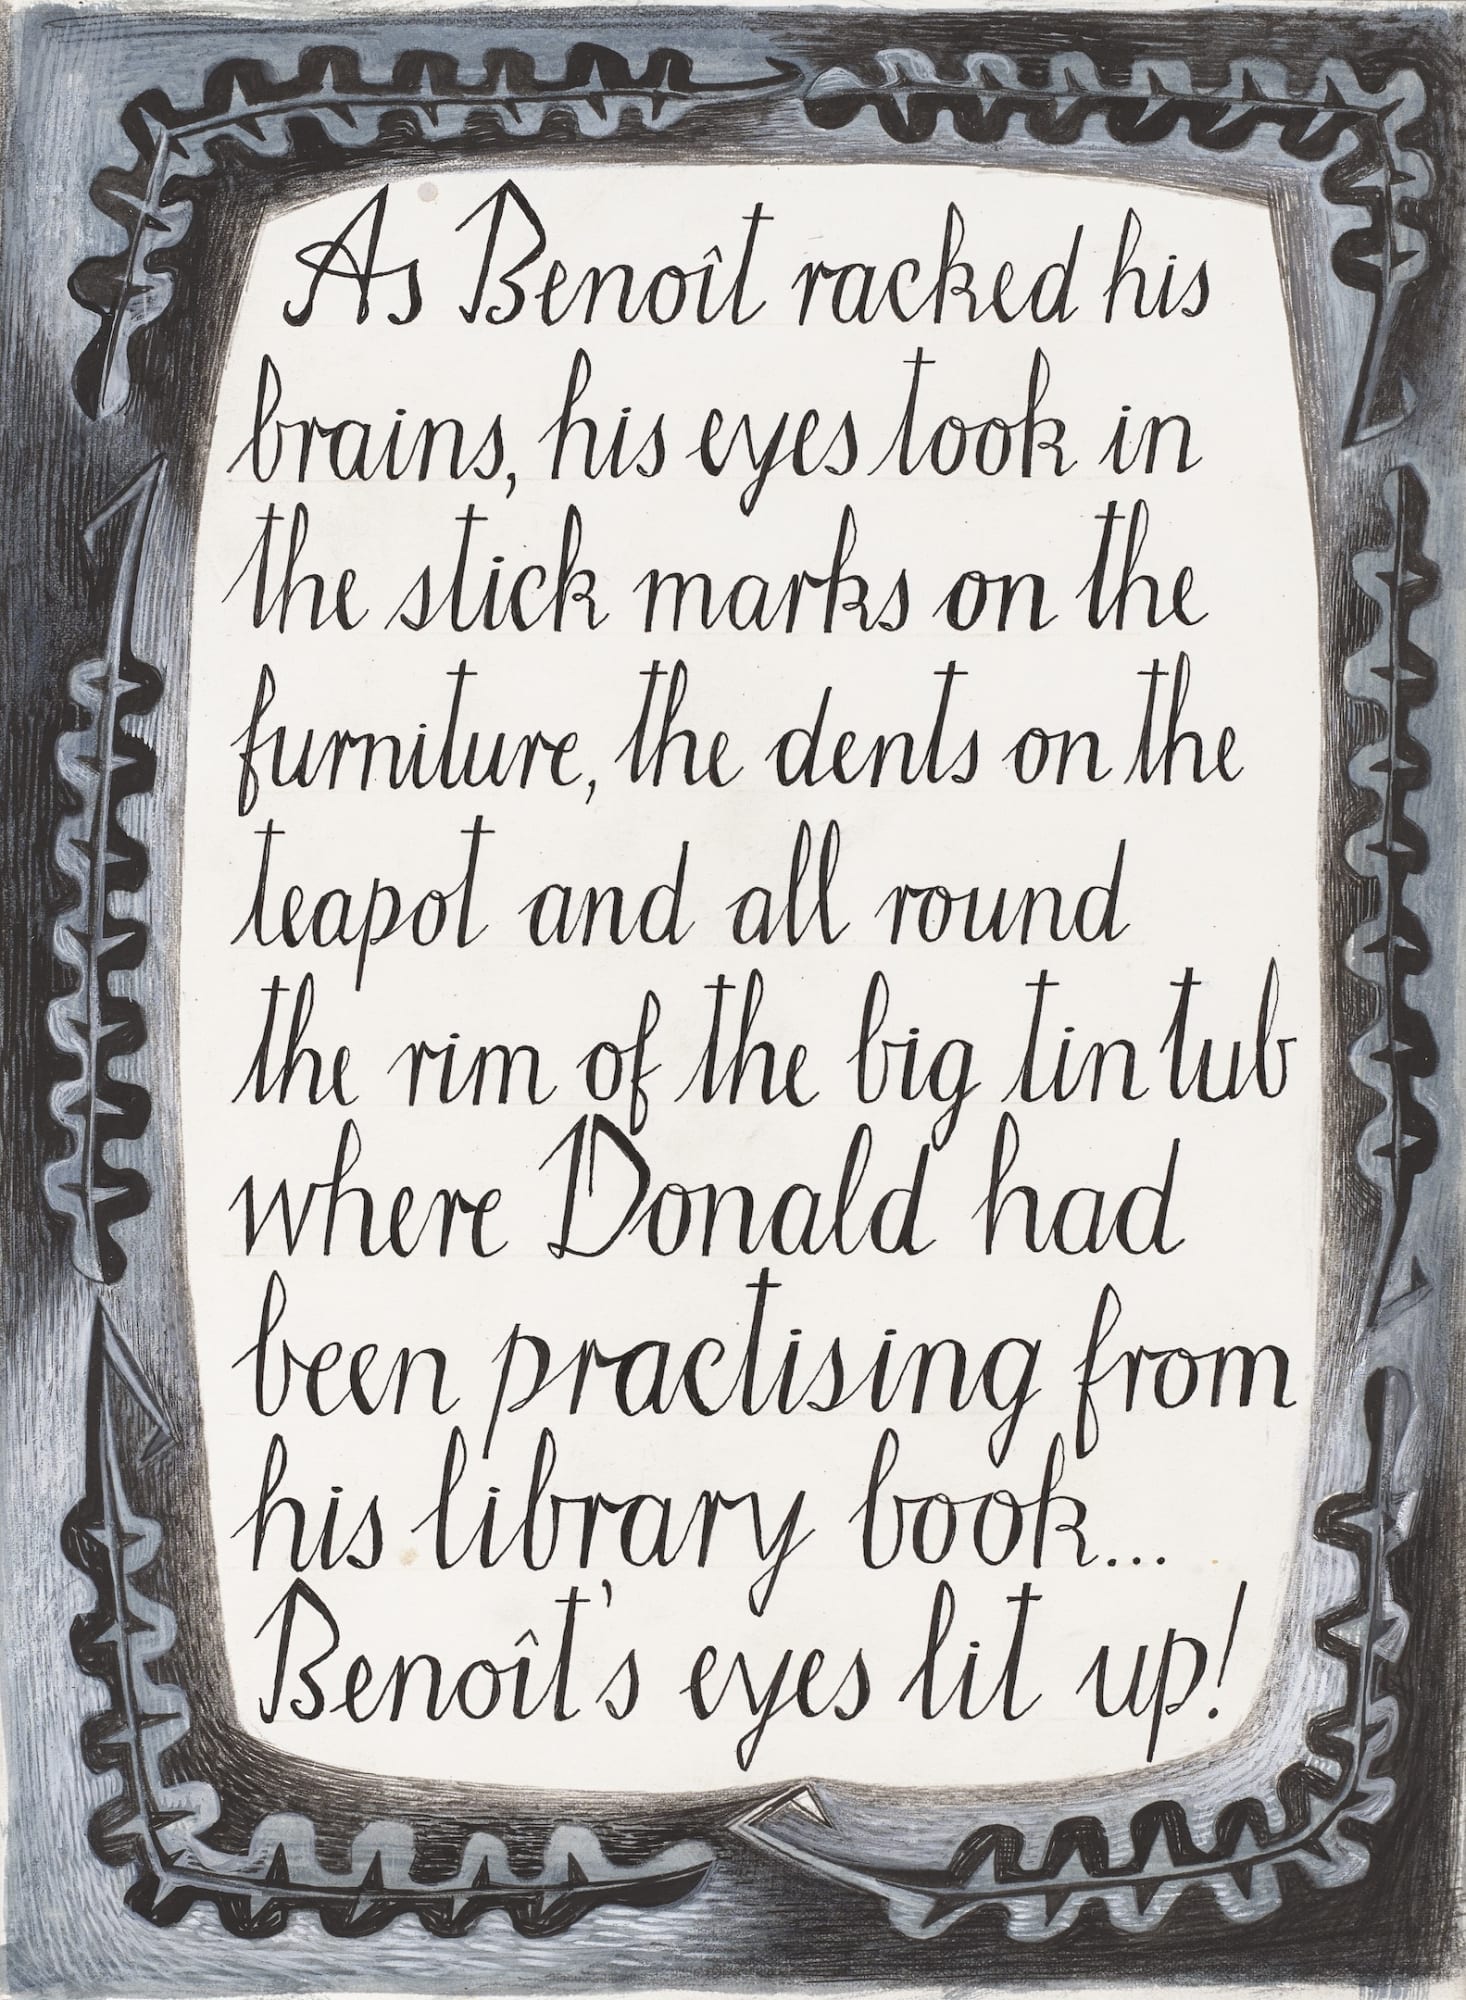 As Benoît racked his
brains, his eyes took in
the stick marks on the
furniture, the dents on the
teapot and all round
the rim of the big tin tub
where Donald had
been practising from
his library book...
Benoît's eyes lit up!